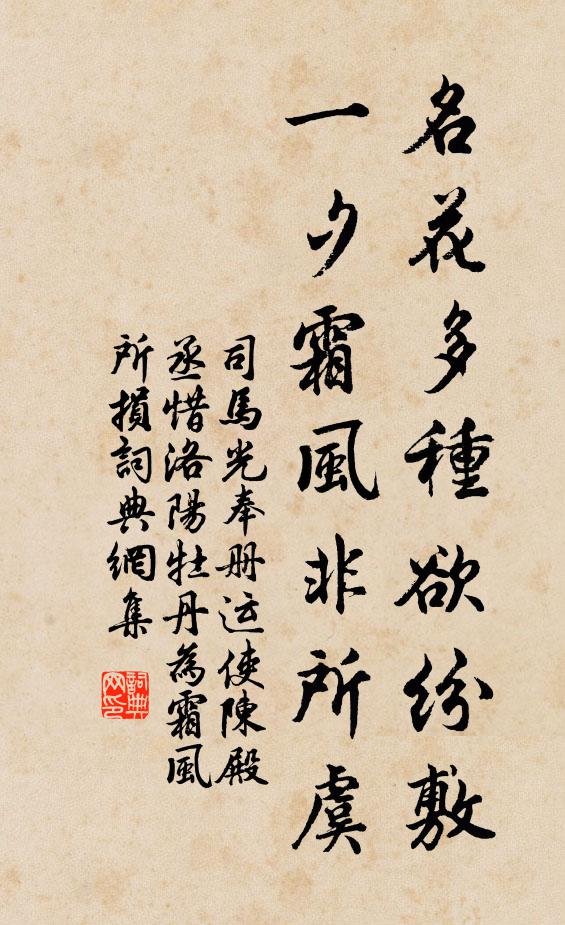 名花多種欲紛敷
一夕霜風非所虞
司馬光奉册运使陳殿
丞惜洛陽牡丹為霜風
所損詞典網集
詞典
网印